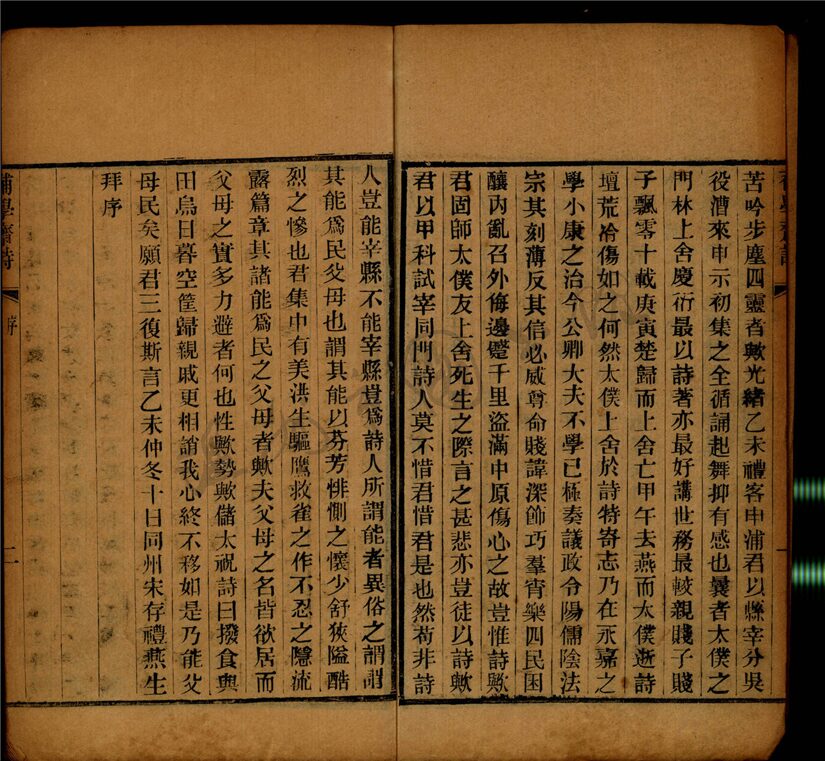 苦吟步塵四靈者歟光緒乙未禮客申浦君以縣宰分吳
役漕來申示初集之全循誦起舞抑有感也曩者太僕之
門林上舍慶衍最以詩著亦最好講世務最較親賤子賤
子飄零十載庚寅楚歸而上舍亡甲午去燕而太僕逝詩
壇荒冷傷如之何然太僕上舍於詩特寄志乃在永嘉之
學小康之治今公卿大夫不學已極奏議政令陽儒陰法
宗其刻薄反其信必威尊命賤諱深飾巧羣宵樂四民困
釀內亂召外侮邊蹙千里盜滿中原傷心之故豈惟詩歟
君固師太僕友上舍死生之際言之甚悲亦豈徒以詩歟
君以甲科試宰同門詩人莫不惜君惜君是也然苟非詩
人豈能宰縣不能宰縣豈爲詩人所謂能者異俗之謂謂
其能爲民父母也謂其能以芬芳悱惻之懷少舒狹隘酷
烈之慘也君集中有美洪生驅鷹救雀之作不忍之隱流
露篇章其諸能爲民之父母者歟夫父母之名皆欲居而
父母之實多力避者何也性歟勢歟儲太祝詩曰撥食與
田烏日暮空筐歸親戚更相誚我心終不移如是乃能父
母民矣願君三復斯言乙未仲冬十日同州宋存禮燕生
拜序
齋詩
序
二